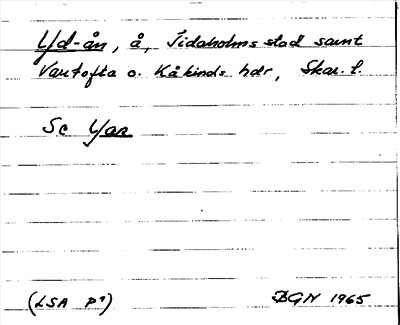 Yd-ån, å, Tidaholms stad samt
Vartofta o. Kåkinds hdr, Skar. l.
Se Yan
(LSA P1) DGN 1965